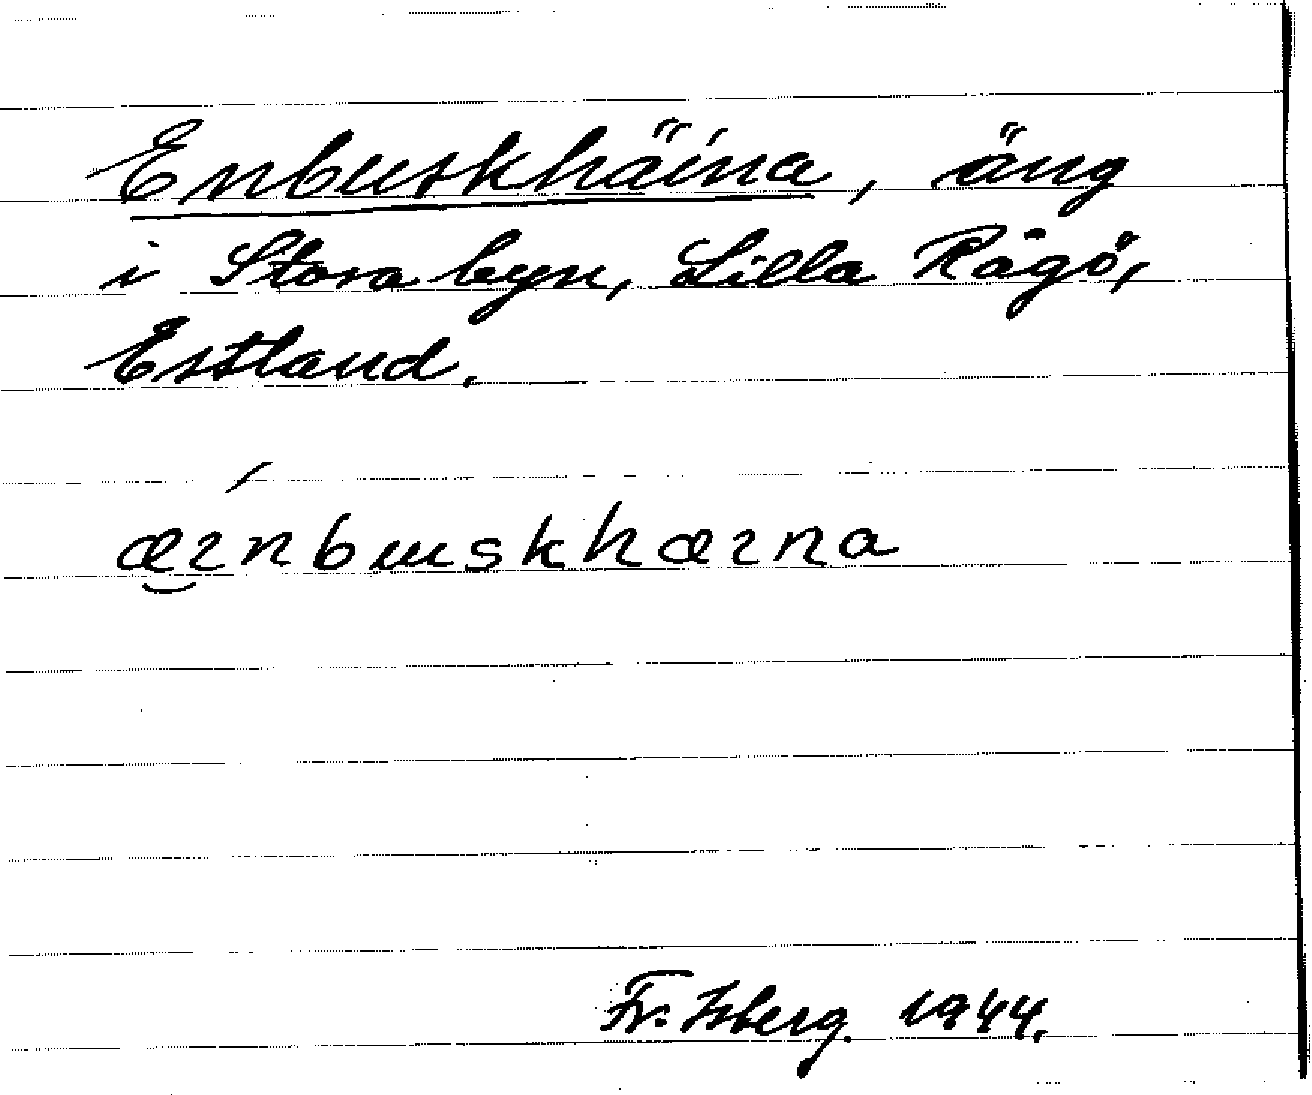 Enbuskhäina, äng
i Stora byn, Lilla Rågö,
Estland.
æɪnbuskhæɪna
Fr. Isberg. 1944.